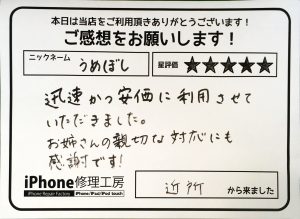 本日は当店をご利用頂きありがとうございます！
ご感想をお願いします！
ニックネーム うめぼし 星評価 ★★★★★
迅速かつ安価に利用させて
いただきました。
お姉さんの親切な対応にも
感謝です!
iPhone修理工房
iPhone Repair Factory iPhone/iPad/iPod touch
近所 から来ました